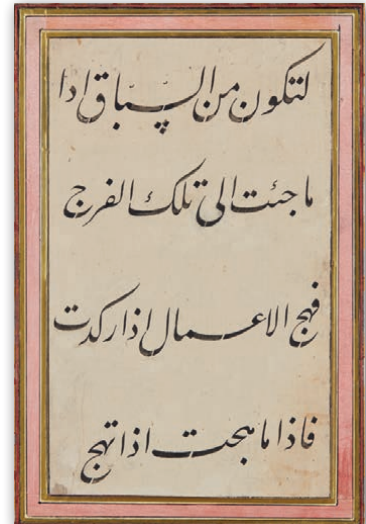 لتكون من السباق اذا
ما جئت الى تلك الفرج
فهج الاعمال اذا ركدت
فاذا ما هجت اذا تهج